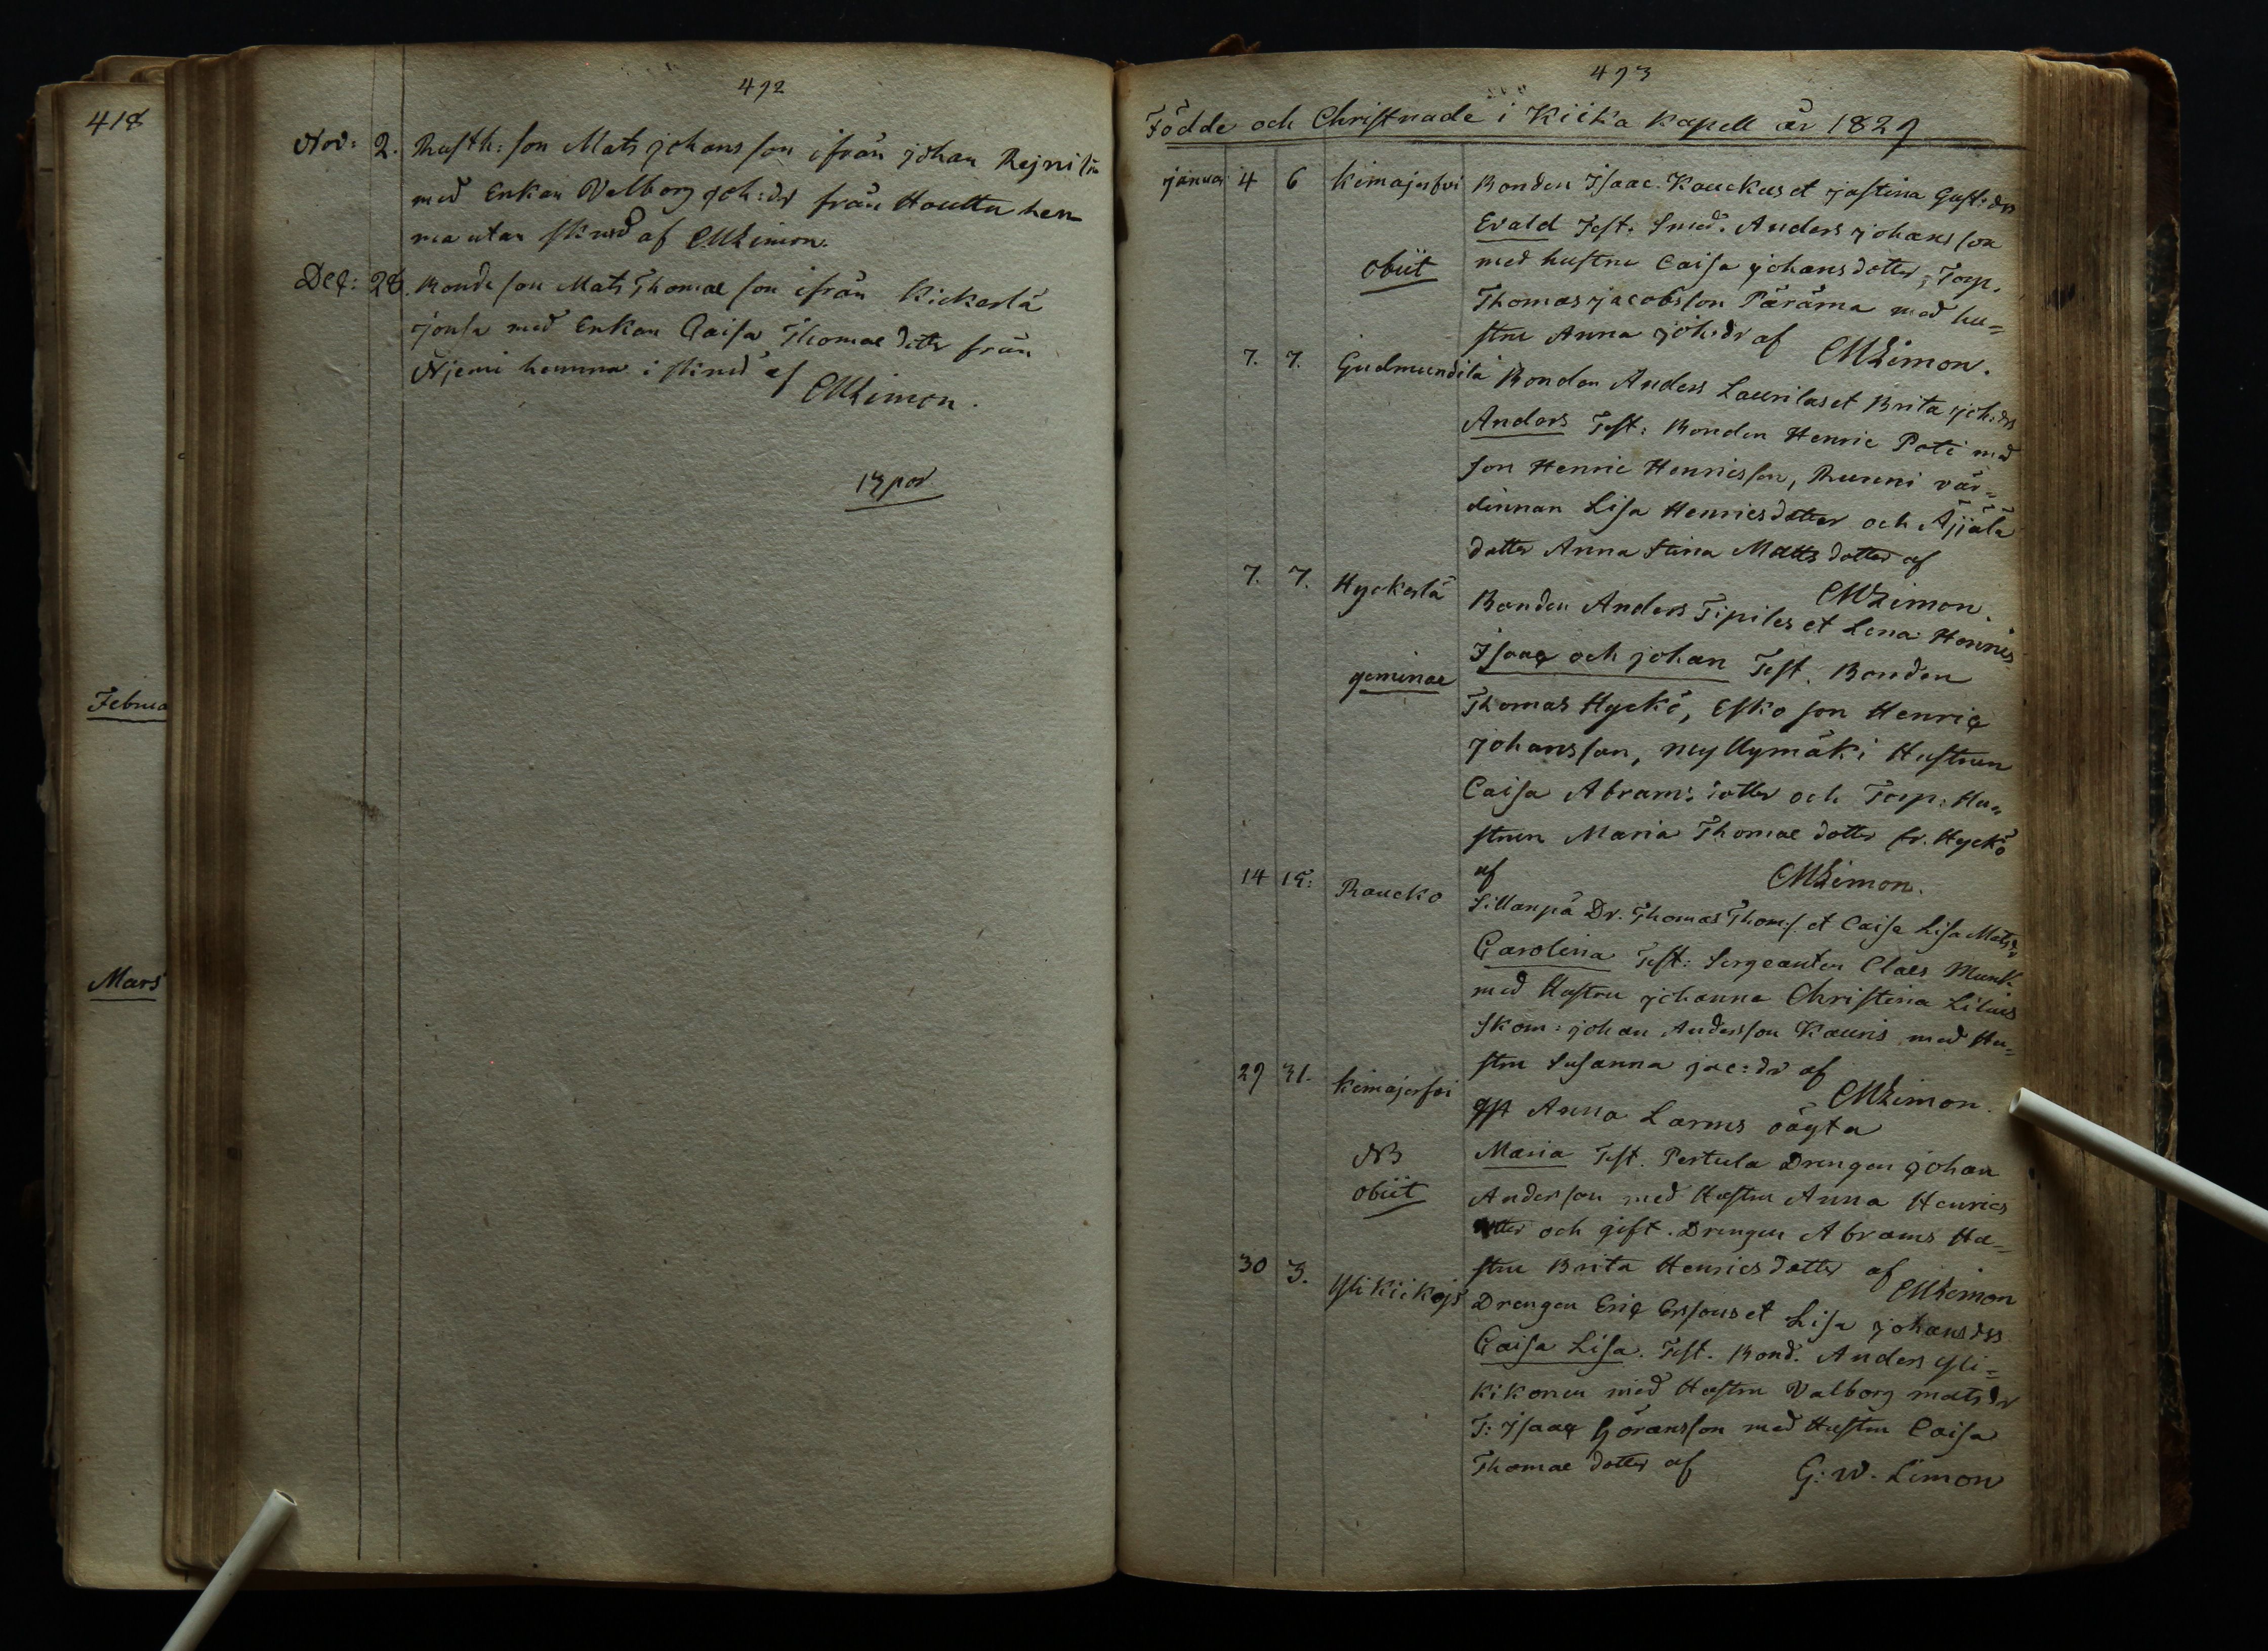 418
Februa
Mars
492
Nov: 2. Rusth: son Mats johansson ifrån johan Rejnilä
med Enkan Valborg joh:dr från Houttu hem
ma utan skrud af GWLimon.
Dec: 28. Bonde son Mats Thomae son ifrån Kickerlä
jonla med Enkan Caisa Thomae dotter från
Äjemi hemma i skrud af
GWLimon.
13 par
493
Födde och Christnade i Kiika Kapell år 1829
januar 4 6 Kimajerfvi Bonden Isaac Kauckus et justina Gust:drs
Evald Test. Smed. Anders johansson
obiit med hustru Caisa johansdotter, Torp.
Thomas jacobsson Päräma med hu=
stru Anna joh:dr af GWLimon.
7. 7. Gudmundila Bonden Anders Laurilas et Brita joh:drs
Anders Test: Bonden Henric Poti med
son Henric Henricsson, Runni vär=
dinnan Lisa Henricsdotter och Äjjälä
dotter Anna Stina Matts dotter af
GWLimon.
7. 7. Hyckerlä Bonden Anders Tipiles et Lena Henrics
geminae Isaac och johan Test. Bonden
Thomas Hyckö, Esko son Henric
johansson, myllymäki Hustrun
Caisa Abrams dotter och Torp: Hu=
strun Maria Thomae dotter fr. Hyckö
af GWLimon.
14 15: Raucko Sillanpä Dr. Thomas Thom:s. et Caisa Lisa Mats:dr
Carolina Test: Sergeanten Claes Munck
med Hustru johanna Christina Lilius
Skom: johan Andersson Kauris med Hu=
stru Susanna jac:dr af
GWLimon.
29 31. Kimajerfvi Anna Larms oägta
NB Maria Test. Pertula Drengen johan
obiit Andersson med Hustru Anna Henrics
dotter och gift. Drengen Abrams Hu=
stru Brita Henricsdotter af GWLimon
30 3. Yli Kiikois Drengen Eric Ersons et Lisa johansdrs
Caisa Lisa. Test. Bond. Anders Yli=
kikonen med Hustru Valborg matsdr
T: Isaac Göransson med Hustru Caisa
Thomae dotter af G: W. Limon